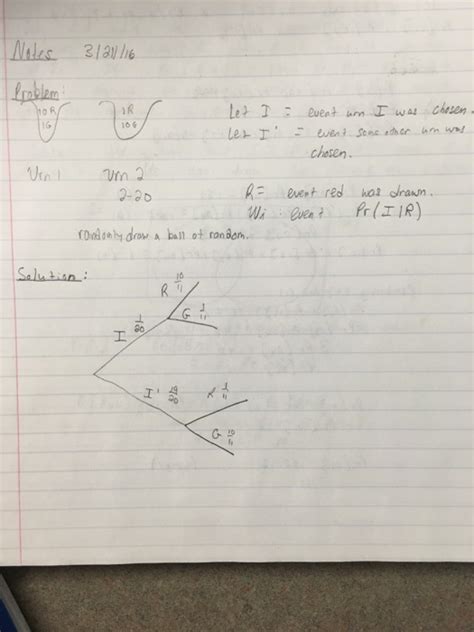 Notes 3/21/16
Problem:
10R
1G
1R
10G
Let I = event urn I was chosen.
Let I' = event some other urn was
chosen.
Urn 1
Urn 2
2-20
R = event red was drawn.
Wi event Pr(I|R)
randomly draw a ball at random.
Solution:
R 10/11
G 1/11
I 1/20
I' 19/20
R 1/11
G 10/11